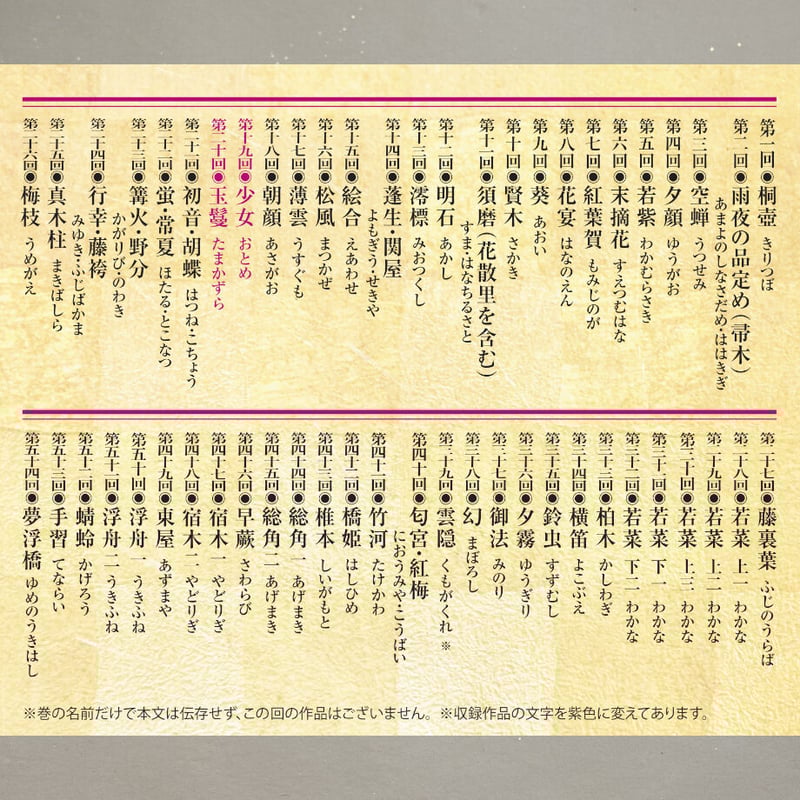 第一回●桐壺 きりつぼ
第二回●雨夜の品定め(帚木)
あまよのしなさだめ・ははきぎ
第三回●空蝉 うつせみ
第四回●夕顔 ゆうがお
第五回●若紫 わかむらさき
第六回●末摘花 すえつむはな
第七回●紅葉賀 もみじのが
第八回●花宴 はなのえん
第九回●葵 あおい
第十回●賢木 さかき
第十一回●須磨(花散里を含む)
すま・はなちるさと
第十二回●明石 あかし
第十三回●澪標 みおつくし
第十四回●蓬生・関屋
よもぎう・せきや
第十五回●絵合 えあわせ
第十六回●松風 まつかぜ
第十七回●薄雲 うすぐも
第十八回●朝顔 あさがお
第十九回●少女 おとめ
第二十回●玉鬘 たまかずら
第二十一回●初音・胡蝶 はつね・こちょう
第二十二回●蛍・常夏 ほたる・とこなつ
第二十三回●篝火・野分
かがりび・のわき
第二十四回●行幸・藤袴
みゆき・ふじばかま
第二十五回●真木柱 まきばしら
第二十六回●梅枝 うめがえ
第二十七回●藤裏葉 ふじのうらば
第二十八回●若菜 上一 わかな
第二十九回●若菜 上二 わかな
第三十回●若菜 上三 わかな
第三十一回●若菜 下一 わかな
第三十二回●若菜 下二 わかな
第三十三回●柏木 かしわぎ
第三十四回●横笛 よこぶえ
第三十五回●鈴虫 すずむし
第三十六回●夕霧 ゆうぎり
第三十七回●御法 みのり
第三十八回●幻 まぼろし
第三十九回●雲隠 くもがくれ※
第四十回●匂宮・紅梅
におうみや・こうばい
第四十一回●竹河 たけかわ
第四十二回●橋姫 はしひめ
第四十三回●椎本 しいがもと
第四十四回●総角 一 あげまき
第四十五回●総角 二 あげまき
第四十六回●早蕨 さわらび
第四十七回●宿木 一 やどりぎ
第四十八回●宿木 二 やどりぎ
第四十九回●東屋 あずまや
第五十回●浮舟 一 うきふね
第五十一回●浮舟 二 うきふね
第五十二回●蜻蛉 かげろう
第五十三回●手習 てならい
第五十四回●夢浮橋 ゆめのうきはし
※巻の名前だけで本文は伝存せず、この回の作品はございません。 ※収録作品の文字を紫色に変えてあります。